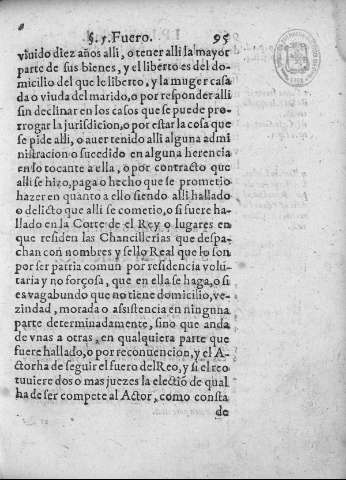 §. 5. Fuero. 95
viuido diez años alli, o tener alli la mayor
parte de sus bienes, y el liberto es del do-
micilio del que le liberto, y la muger casa
da o viuda del marido, o por responder alli
sin declinar en los casos que se puede pro-
rrogar la jurisdicion, o por estar la cosa que
se pide alli, o auer tenido alli alguna admi
nistracion o sucedido en alguna herencia
en lo tocante a ella, o por contracto que
alli se hizo, paga o hecho que se prometio
hazer en quanto a ello siendo alli hallado
o delicto que alli se cometio, o si fuere ha-
llado en la Corte de el Rey o lugares en
que residen las Chancillerias que despa-
chan con nombres y sello Real que lo son
por ser patria comun por residencia volū-
taria y no forçosa, que en ella se haga, o si
es vagabundo que no tiene domicilio, ve-
zindad, morada o asistencia en ningunа
parte determinadamente, sino que anda
de vnas a otras, en qualquiera parte que
fuere hallado, o por reconuencion, y el A-
ctor ha de seguir el fuero del Reo, y si el reo
tuuiere dos o mas juezes la electiō de qual
ha de ser compete al Actor, como consta
de